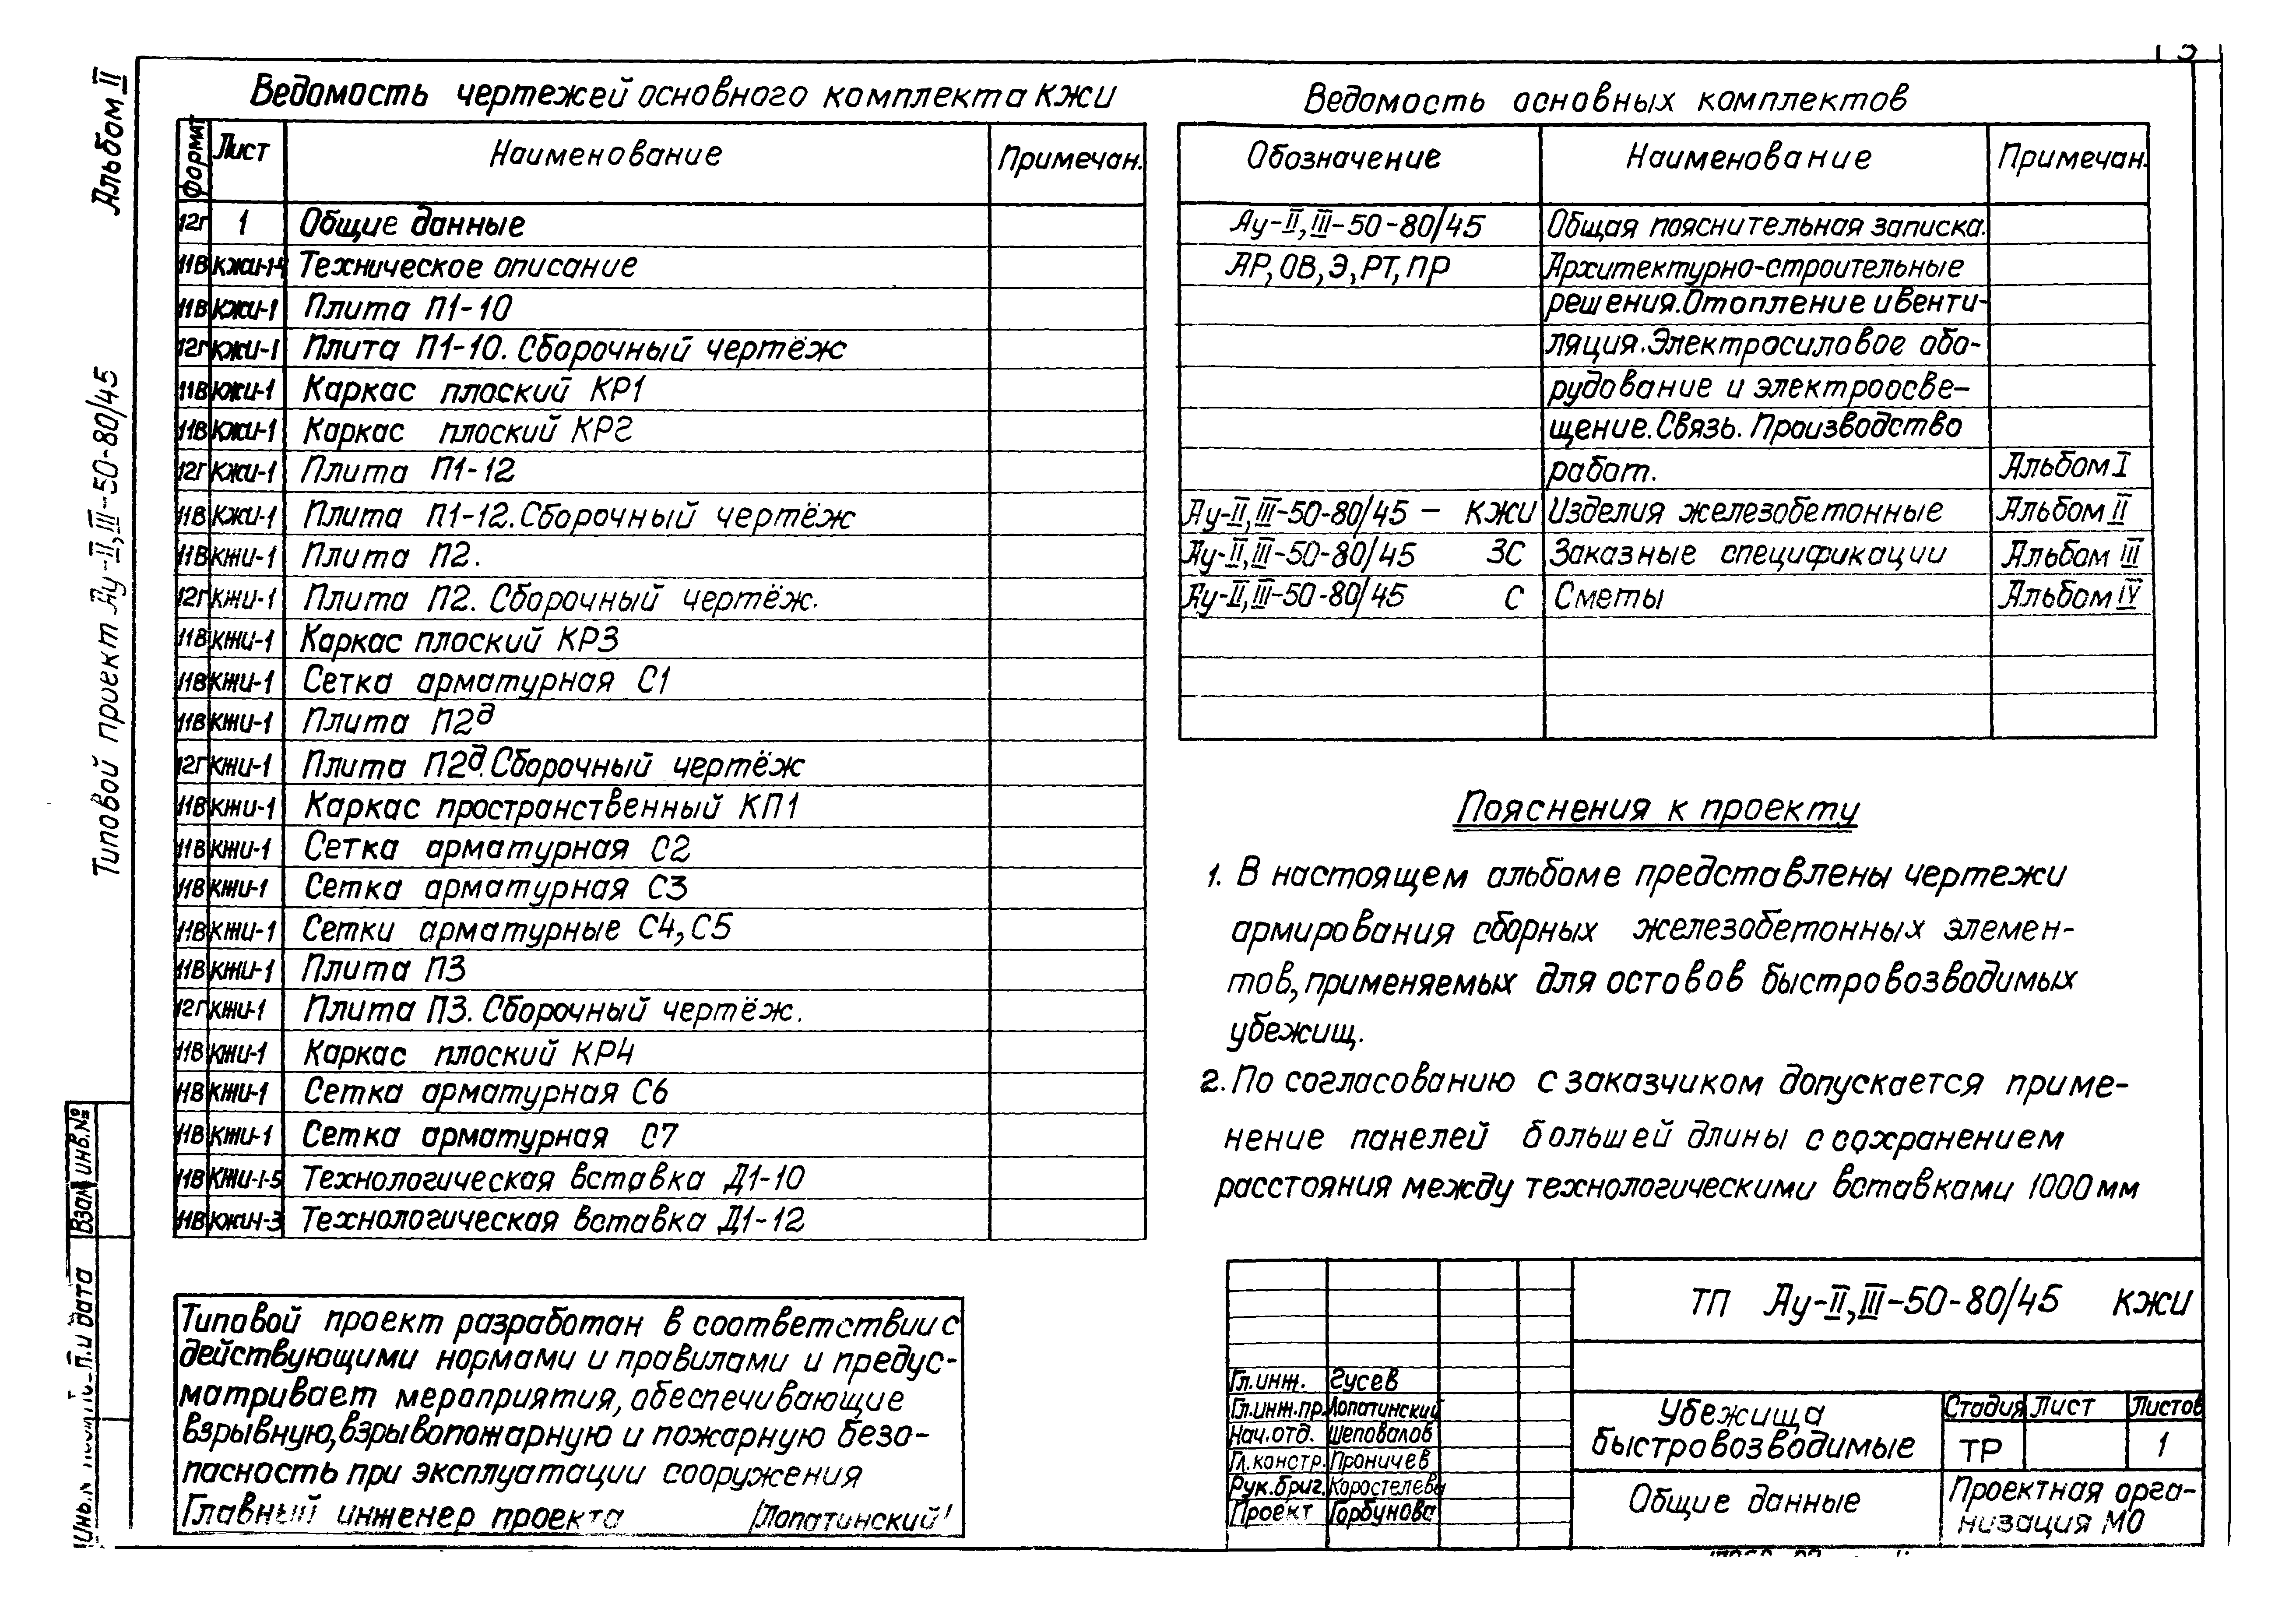 Альбом II
Типовой проект Ау-II,III-50-80/45
Взам инв.№
Ведомость чертежей основного комплекта КЖИ
Формат Лист Наименование Примечан.
12г 1 Общие данные
11В КЖИ-1-4 Техническое описание
11В КЖИ-1 Плита П1-10
12г КЖИ-1 Плита П1-10. Сборочный чертёж
11В КЖИ-1 Каркас плоский КР1
11В КЖИ-1 Каркас плоский КР2
12г КЖИ-1 Плита П1-12
11В КЖИ-1 Плита П1-12. Сборочный чертёж
11В КЖИ-1 Плита П2.
12г КЖИ-1 Плита П2. Сборочный чертёж.
11В КЖИ-1 Каркас плоский КР3
11В КЖИ-1 Сетка арматурная С1
11В КЖИ-1 Плита П2д
12г КЖИ-1 Плита П2д. Сборочный чертёж
11В КЖИ-1 Каркас пространственный КП1
11В КЖИ-1 Сетка арматурная С2
11В КЖИ-1 Сетка арматурная С3
11В КЖИ-1 Сетки арматурные С4,С5
11В КЖИ-1 Плита П3
12г КЖИ-1 Плита П3. Сборочный чертёж.
11В КЖИ-1 Каркас плоский КР4
11В КЖИ-1 Сетка арматурная С6
11В КЖИ-1 Сетка арматурная С7
11В КЖИ-1-5 Технологическая вставка Д1-10
11В Технологическая вставка Д1-12
Типовой проект разработан в соответствии с
действующими нормами и правилами и предус-
матривает мероприятия, обеспечивающие
взрывную, взрывопожарную и пожарную безо-
пасность при эксплуатации сооружения
Главный инженер проекта /Лопатинский/
Ведомость основных комплектов
Обозначение Наименование Примечан.
Ау-II,III-50-80/45 Общая пояснительная записка.
АР,ОВ,Э,РТ,ПР Архитектурно-строительные
решения. Отопление и венти-
ляция. Электросиловое обо-
рудование и электроосве-
щение. Связь. Производство
работ. Альбом I
Ау-II,III-50-80/45 - КЖИ Изделия железобетонные Альбом II
Ау-II,III-50-80/45 ЗС Заказные спецификации Альбом III
Ау-II,III-50-80/45 С Сметы Альбом IV
Пояснения к проекту
1. В настоящем альбоме представлены чертежи
армирования сборных железобетонных элемен-
тов, применяемых для остовов быстровозводимых
убежищ.
2. По согласованию с заказчиком допускается приме-
нение панелей большей длины с сохранением
расстояния между технологическими вставками 1000 мм
ТП Ау-II,III-50-80/45 КЖИ
Гл.инж. Гусев
Гл.инж.пр. Лопатинский
Нач.отд. Шеповалов
Гл.констр. Проничев
Рук.бриг. Коростелева
Проект Горбунова
Убежища
быстровозводимые
Стадия Лист Листов
ТР 1
Общие данные
Проектная орга-
низация МО